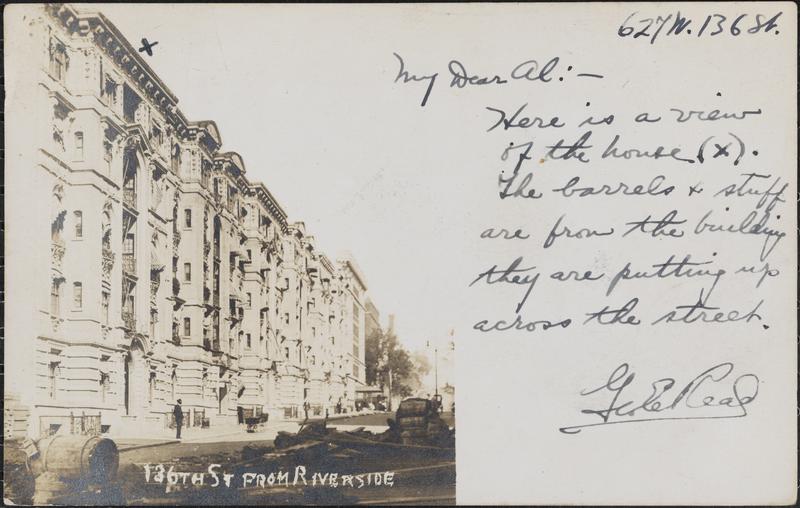 627 W. 136 St.
My Dear Al:—
Here is a view
of the house (x).
The barrels + stuff
are from the building
they are putting up
across the street.
Geo E Read
x
136TH ST FROM RIVERSIDE